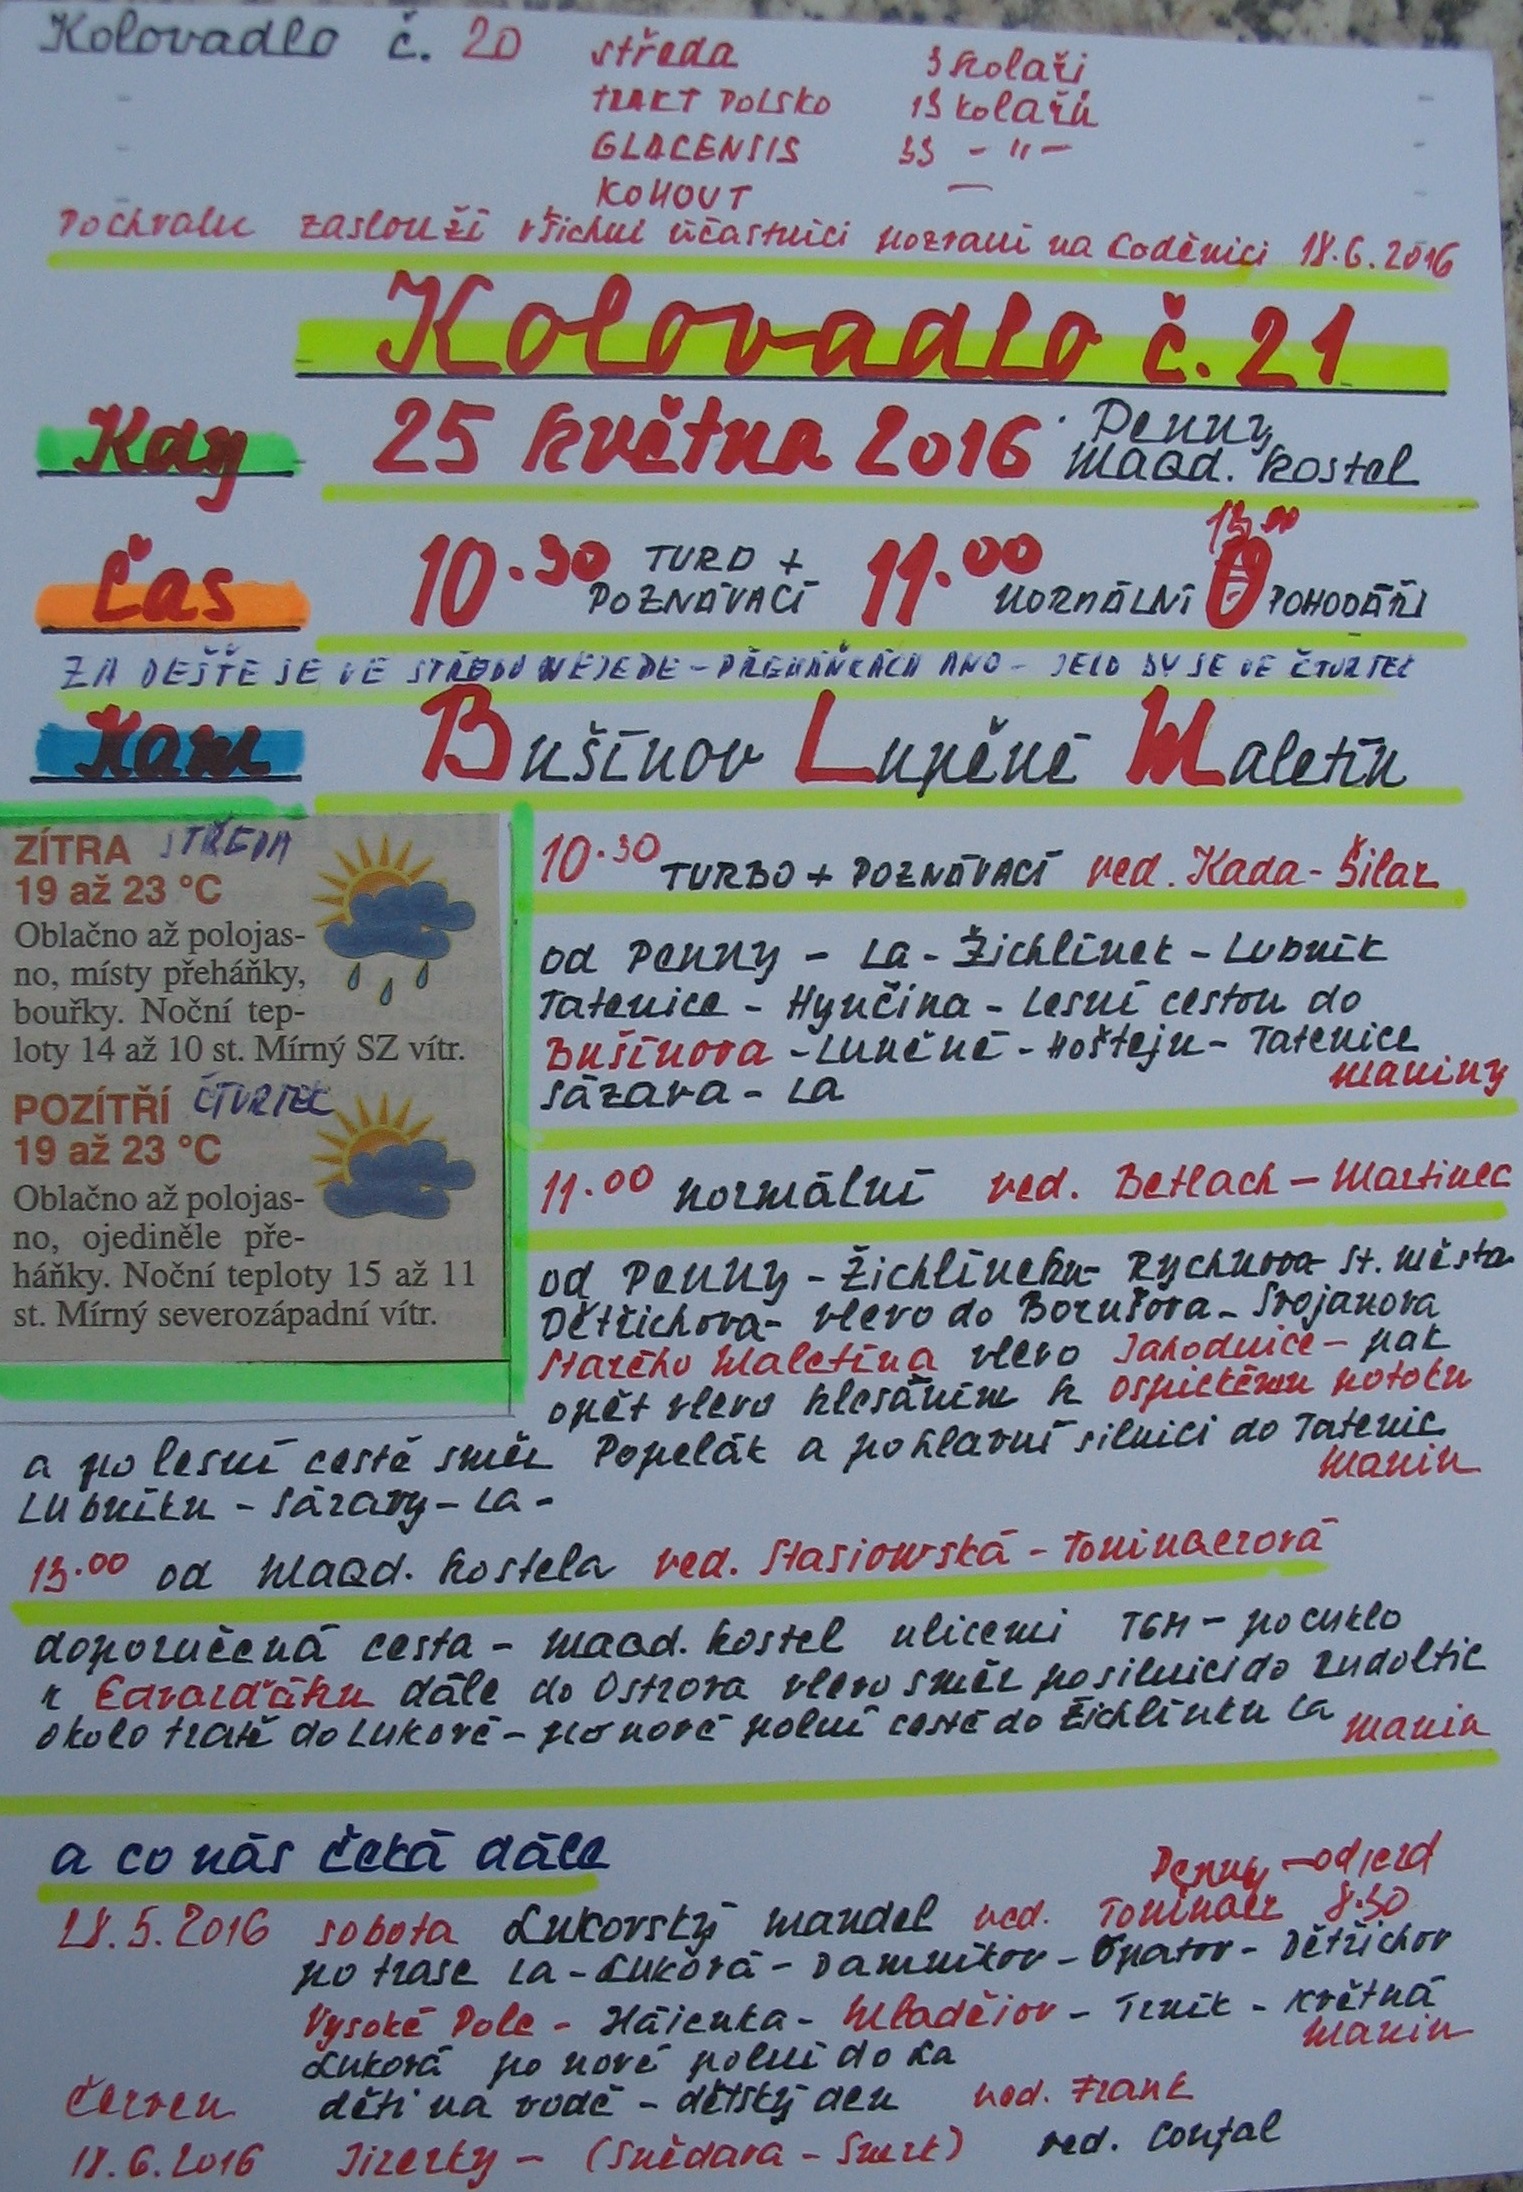 Kolovadlo č. 20
středa 3 kolaři
TRAKT POLSKO 13 kolařů
GLACENSIS 33 - " -
KOHOUT —
Pochvalu zaslouží všichni účastníci pozvaní na loděnici 18.6.2016
Kolovadlo č. 21
Kdy 25 května 2016 Penny
Magd. kostel
Čas 10.30 TURBO + POZNÁVACÍ 11.00 NORMÁLNÍ 13.00 POHODÁŘI
ZA DEŠTĚ SE VE STŘEDU NEJEDE - PŘEHÁŇKÁCH ANO - JELO BY SE VE ČTVRTEK
Kam Bušínov Lupěné Maletín
ZÍTRA STŘEDA
19 až 23 °C
Oblačno až polojas-
no, místy přeháňky,
bouřky. Noční tep-
loty 14 až 10 st. Mírný SZ vítr.
POZÍTŘÍ ČTVRTEK
19 až 23 °C
Oblačno až polojas-
no, ojediněle pře-
háňky. Noční teploty 15 až 11
st. Mírný severozápadní vítr.
10.30 TURBO + POZNÁVACÍ ved. Kada - Šilar
od Penny - La - Žichlínek - Lubník
Tatenice - Hynčina - Lesní cestou do
Bušínova - Lupěné - Hoštejn - Tatenice
Sázava - La maniny
11.00 normální ved. Betlach - Martinec
od Penny - Žichlínku - Rychnova st. města
Dětřichova - vlevo do Borušova - Svojanova
Starého Maletína vlevo Jahodnice - pak
opět vlevo klesáním k Ospickému potoku
a po lesní cestě směr Popelák a po hlavní silnici do Tatenic
Lubníku - Sázavy - La - manin
13.00 od Magd. kostela ved. Stasiowská - Toningerová
doporučená cesta - magd. kostel ulicemi TGM - po cyklo
k Edvarďáku dále do Ostrova vlevo směr po silnici do Rudoltic
okolo tratě do Lukové - po nové polní cestě do Žichlínku La manin
a co nás čeká dále
Penny - odjezd
28.5.2016 sobota Lukovský mandel ved. Toninger 8.30
po trase La - Luková - Damníkov - Opatov - Dětřichov
Vysoké Pole - Hájenka - Mladějov - Trník - Květná
Luková po nové polní do La manin
Červen děti na vodě - dětský den ved. Frank
18.6.2016 Jizerky - (Smědava - Smrk) ved. Coufal